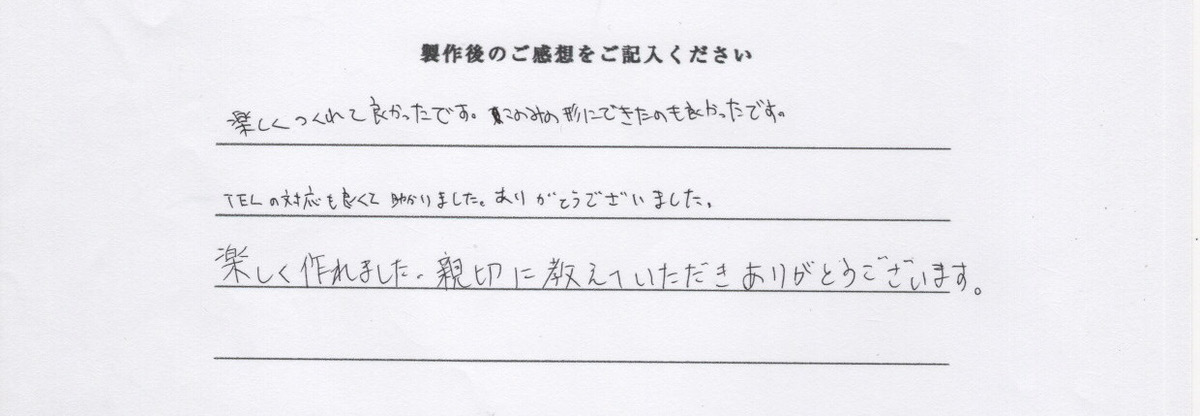 製作後のご感想をご記入ください
楽しくつくれて良かったです。このみの形にできたのも良かったです。
TELの対応も良くて助かりました。ありがとうございました。
楽しく作れました。親切に教えていただきありがとうございます。